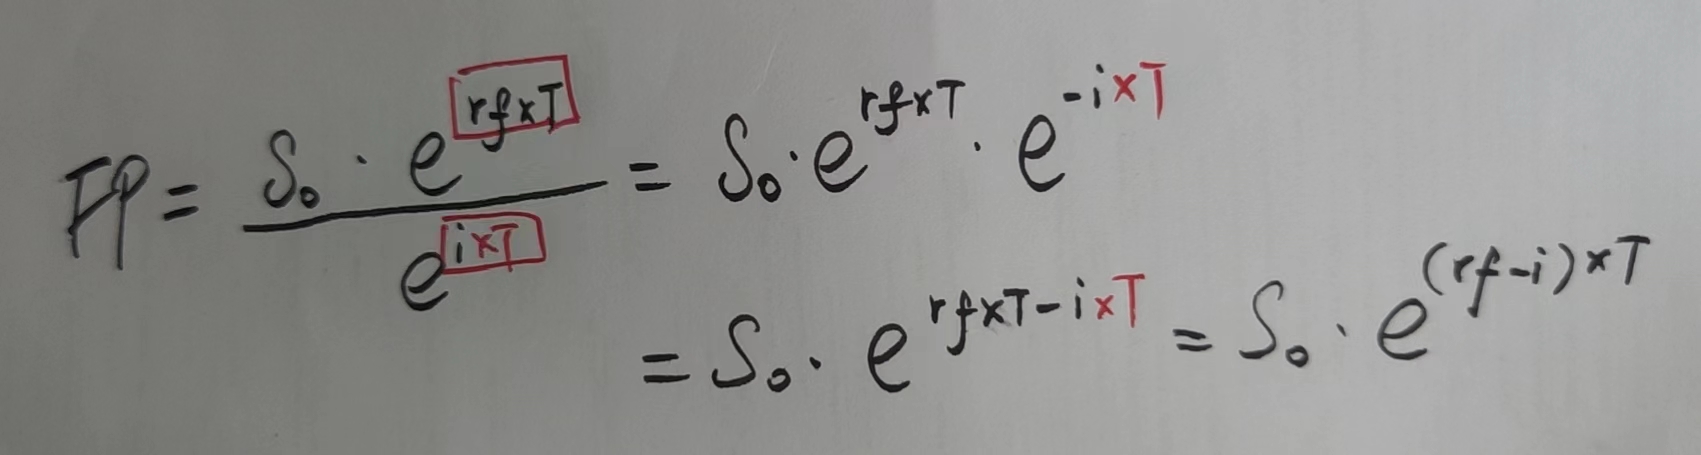 FP = S₀ · e^(rf×T) / e^(i×T) = S₀ · e^(rf×T) · e^(-i×T)
= S₀ · e^(rf×T-i×T) = S₀ · e^((rf-i)×T)